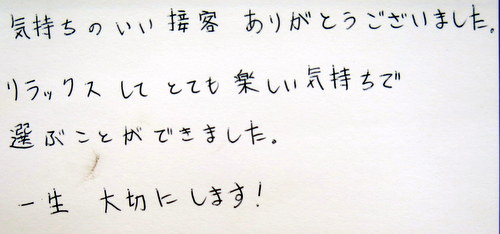 気持ちのいい接客 ありがとうございました。
リラックスして とても 楽しい気持ちで
選ぶことができました。
一生 大切にします!